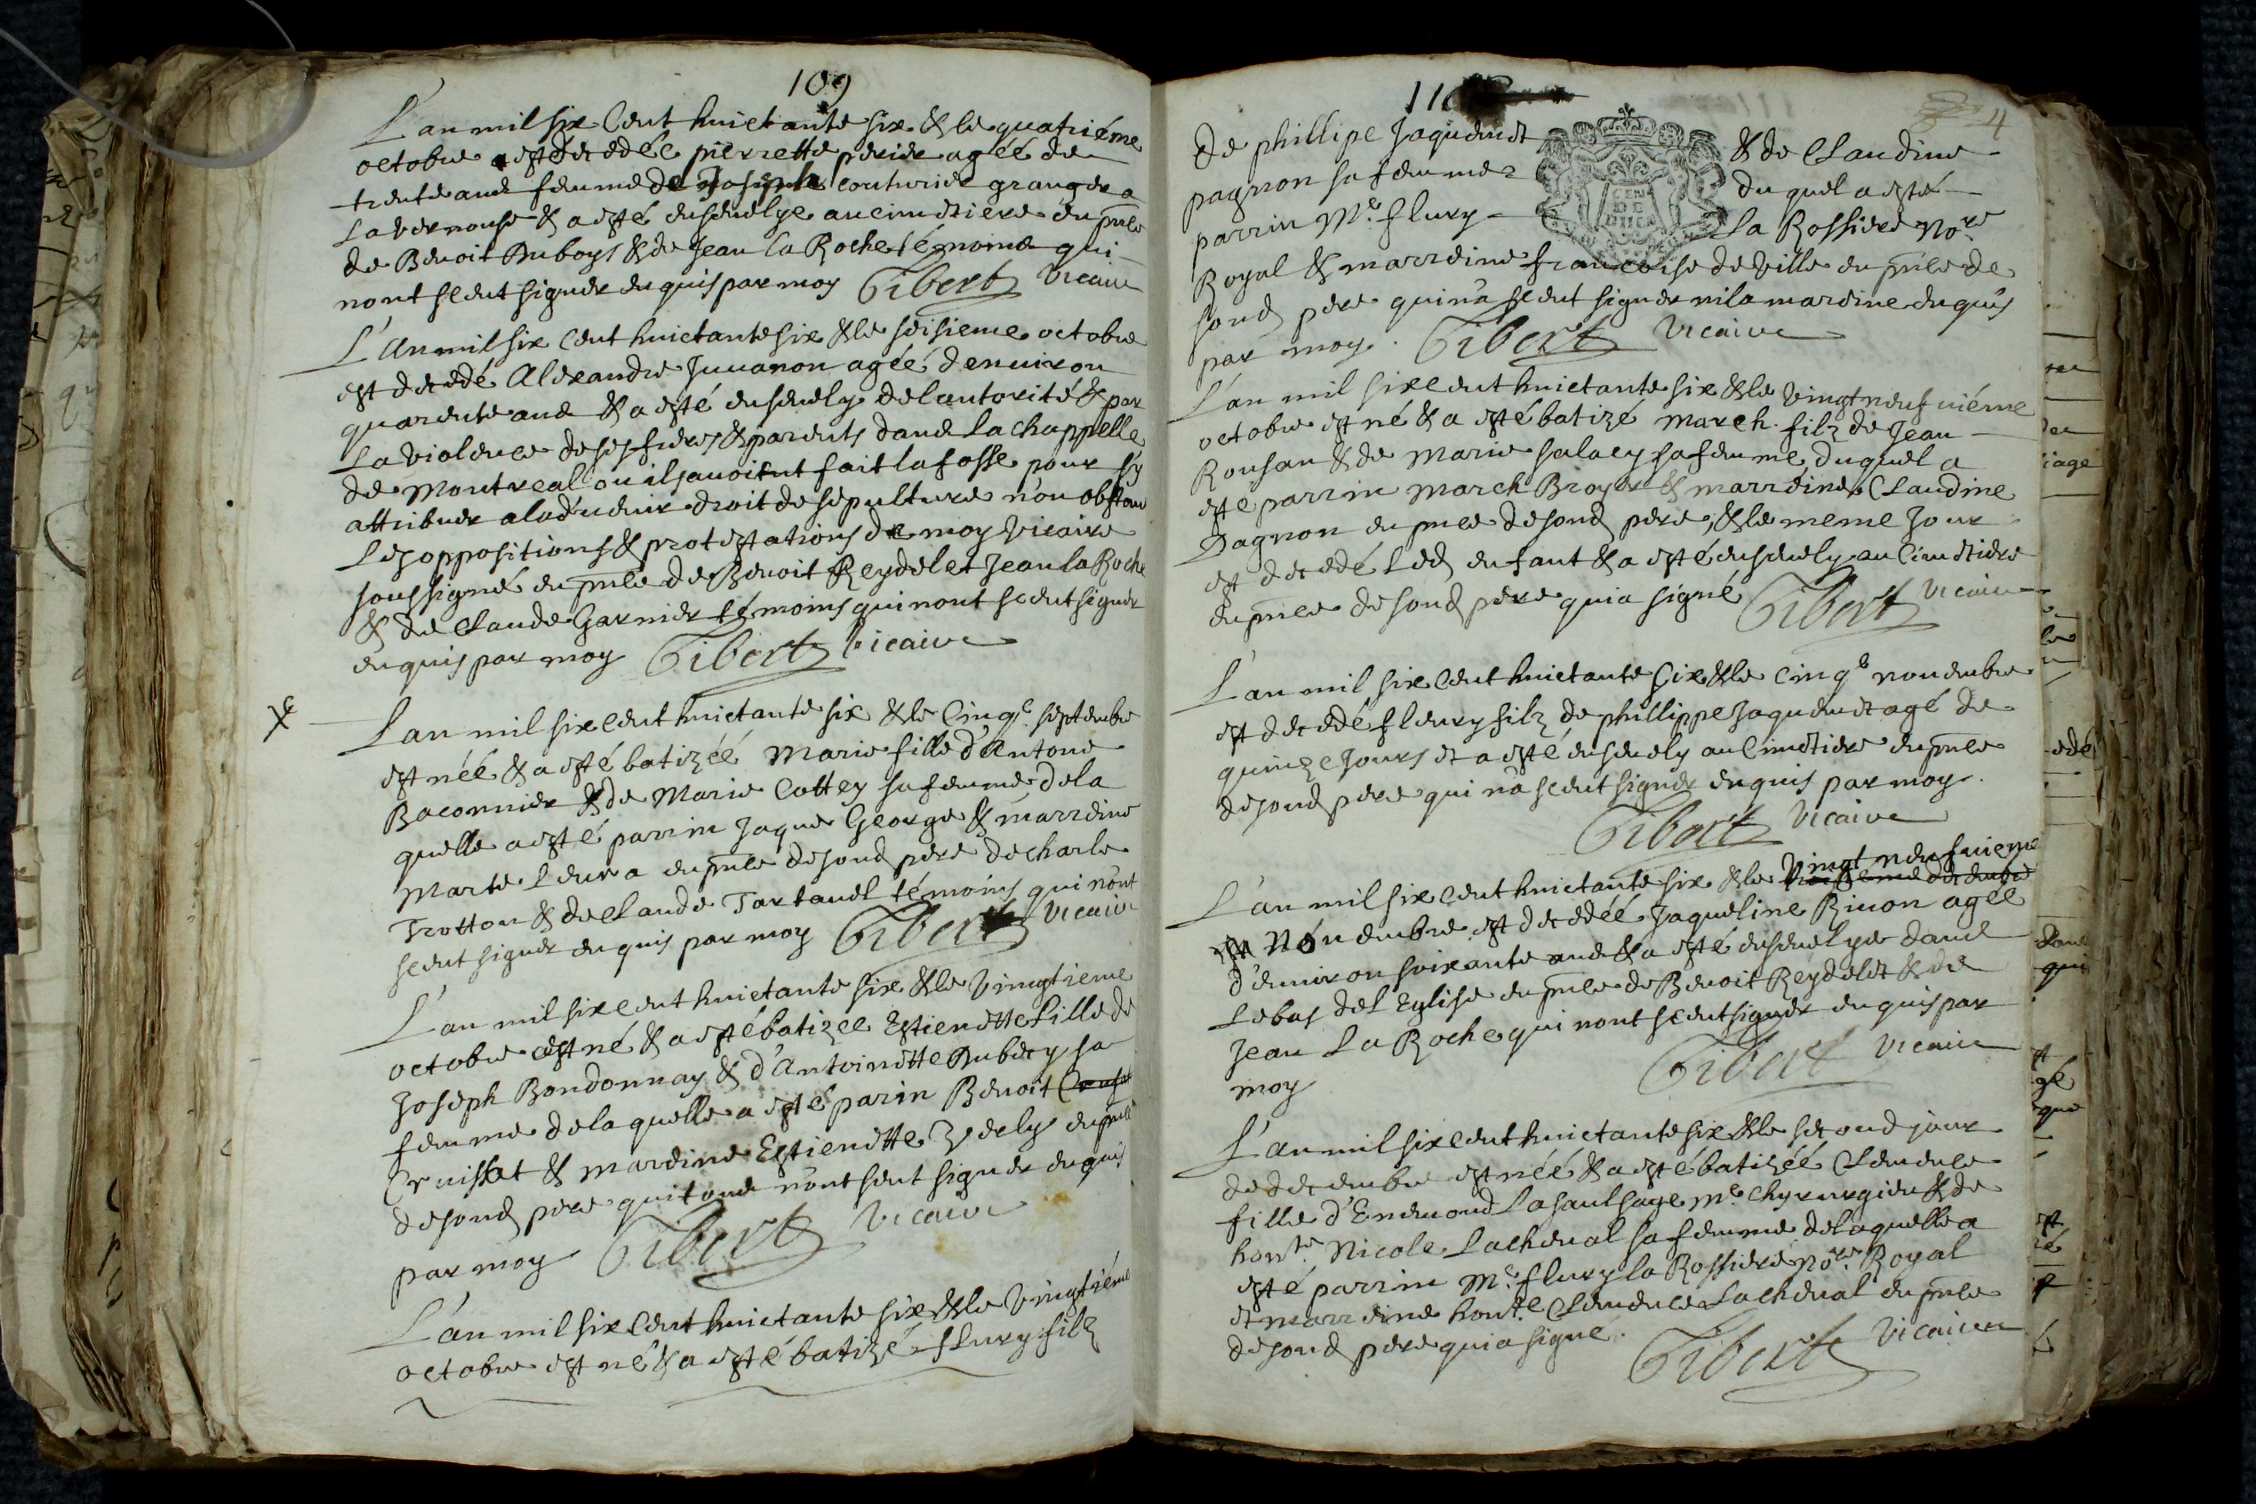 109
L'an mil six Cent huictante six & le quatriéme
octobre est decedée pierrette perier agée de
trente ans femme de Joseph Couturier granger a
La vernouse & a esté ensevelye au cimetiere en pnce
de Benoit Duboys & de Jean la Roche témoins qui
n'ont sceut signer enquis par moy Gibert Vicaire
L'An mil six Cent huictante six & le seisieme octobre
est decedé Alexandre Juvanon agée d'environ
quarente ans & a esté ensevely de l'autorité & par
La violence de ses freres & parents dans La chappelle
de Montreal ou ils avoient fait la fosse pour s'y
attribuer a l'advenir droit de sepulture non obstant
Les oppositions & protestations de moy Vicaire
soussigné en pnce de Benoit Reydelet Jean la Roche
& de Claude Garnier témoins qui n'ont sceut signer
enquis par moy Gibert Vicaire
L'an mil six Cent huictante six & le Cinqe septembre
est née & a esté batizéé Marie fille d'Antoine
Baconnier & de Marie Cottey sa femme de la
quelle a esté parrin Jaque George & marreine
Marte Leura en pnce de sond pere de charle
Trotton & de Claude Tartauel témoins qui n'ont
sceut signer enquis par moy Gibert Vicaire
L'an mil six Cent huictante six & le Vingtieme
octobre est né & a esté batizee Estienette fille de
Joseph Bondonnay & d'Antoinette Dubecy sa
femme de laquelle a esté parin Benoit
Cruissat & mareine Estienette en pnce
de sond pere qui tous n'ont sceut signer enquis
par moy Gibert Vicaire
L'an mil six Cent huictante six & le Vingtiéme
octobre est né & a esté batizé flury filz
4
de phillipe Jaquemet & de Claudine
pagnon sa femme du quel a esté
parrin Me flury La Rossiere Nore
Royal & marreine francoise deville en pnce de
sond pere qui n'a sceut signer ni la mareine enquis
par moy. Gibert Vicaire
L'an mil six cent huictante six & le Vingtneufviéme
octobre est né & a esté batizé March filz de Jean
Rousan & de Marie salacy sa femme duquel a
esté parrin March Broyer & marreine Claudine
Dagnon en pnce de sond pere, & le meme Jour
est decedé Led enfant & a esté ensevely au Cimetiere
en pnce de sond pere qui a signé Gibert Vicaire
L'an mil six Cent huictante six & le Cinqe novembre
est decedé fleury filz de phillippe Jaquemet agé de
quinze Jours et a esté ensevely au Cimetiere en pnce
de sond pere qui n'a sceut signer enquis par moy.
Gibert Vicaire
L'an mil six Cent huictante six & le Vingt neufvieme
Novembre est decedéé Jaqueline Rivon agée
d'environ soixante ans & a esté ensevelye dans
Le bas de l'Eglise en pnce de Benoit Reydelet & de
Jean La Roche qui n'ont sceut signer enquis par
moy Gibert Vicaire
L'an mil six Cent huictante six & le second jour
de decembre est néé & a esté batizéé Clemence
fille d'Enemond Lasaulsaye me Chyrurgien & de
honte Nicole Lacheval sa femme de laquelle a
esté parrin Me flury la Rossiere Nore Royal
et marreine honte Clemence Lacheval en pnce
de sond pere qui a signé. Gibert Vicaire